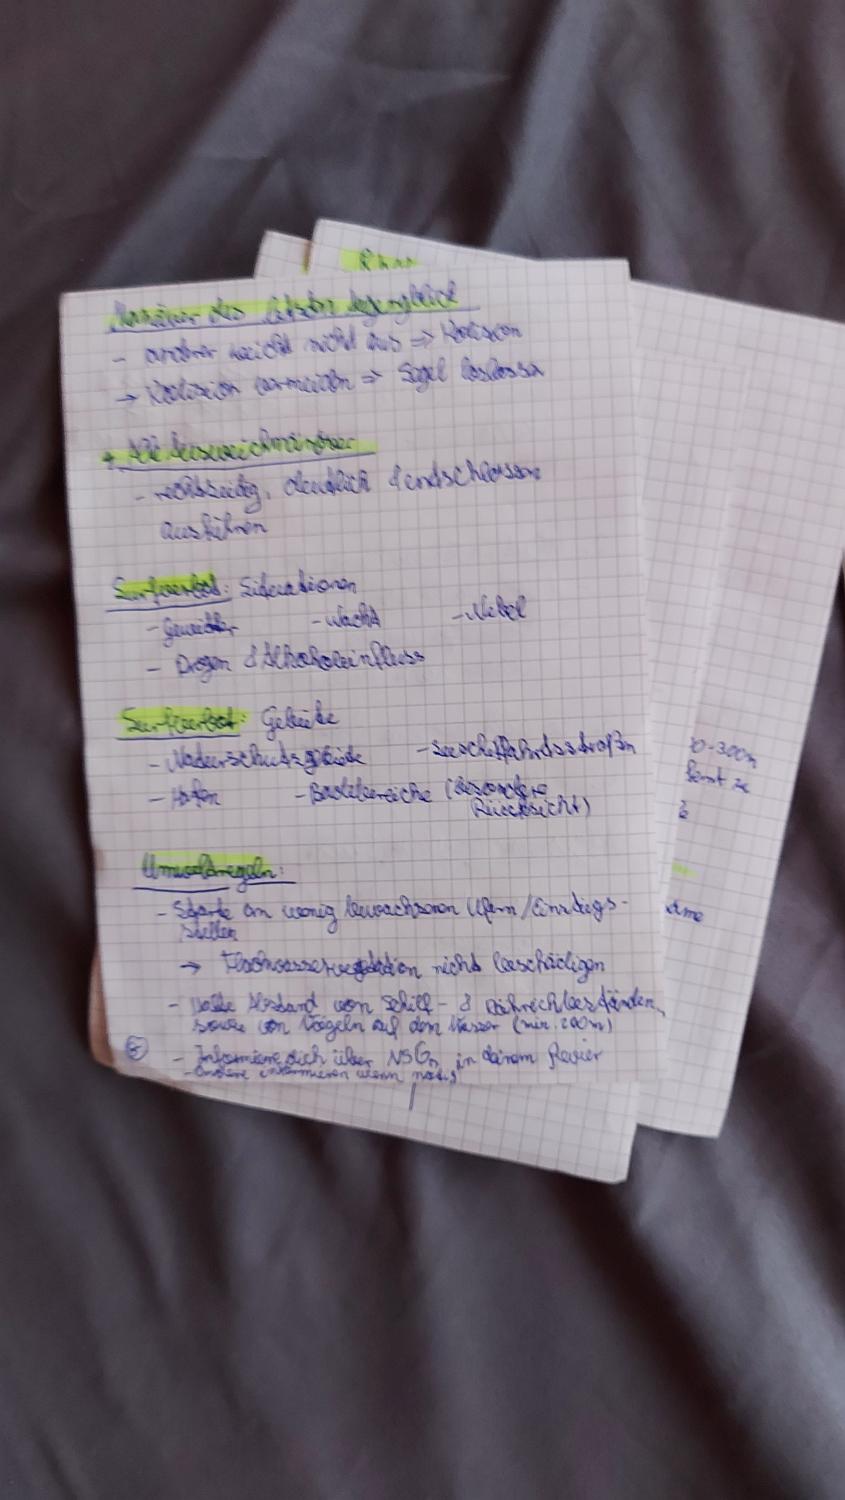 Manöver des letzten Augenblick
- andrer weicht nicht aus => Kollision
→ Kollision vermeiden => Segel loslassen
+ Alle Ausweichmanöver
- rechtzeitig, deutlich & endschlossen
ausführen
Surfverbot: Situationen
- Gewitter - Nacht - Nebel
- Drogen & Alkoholeinfluss
Surfverbot: Gebiete
- Naturschutzgebiete - Seeschifffahrtsstraßen
- Hafen - Badebereiche (besondere
Rücksicht)
Umweltregeln:
- Starte an wenig bewachsenen Ufern/Einstiegs-
stellen
→ Flachwasservegetation nicht beschädigen
- Halte Abstand von Schilf- & Röhrichtbeständen,
sowie von Vögeln auf dem Wasser (min. 200m)
- Informiere dich über NSGn in deinem Revier
- Andere informieren wenn nötig
0-300m